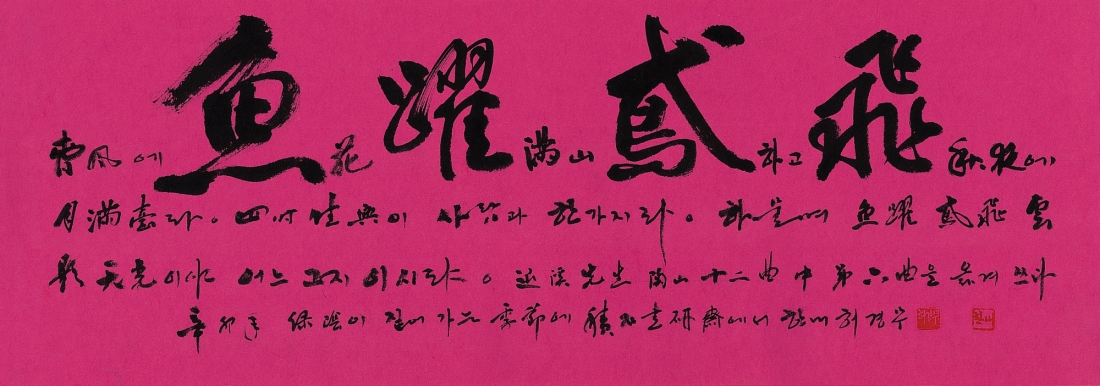 魚躍鳶飛
春風에 花滿山하고 秋夜에
月滿臺라。四時佳興이 사람과 한가지라。하물며 魚躍鳶飛 雲
影 天光이야 어느 그지 이시라。退溪先生 陶山十二曲 中 第六曲을 옮겨 쓰다
辛卯年 綠陰이 짙어 가는 季節에 書硏齋에서 한메 허경무